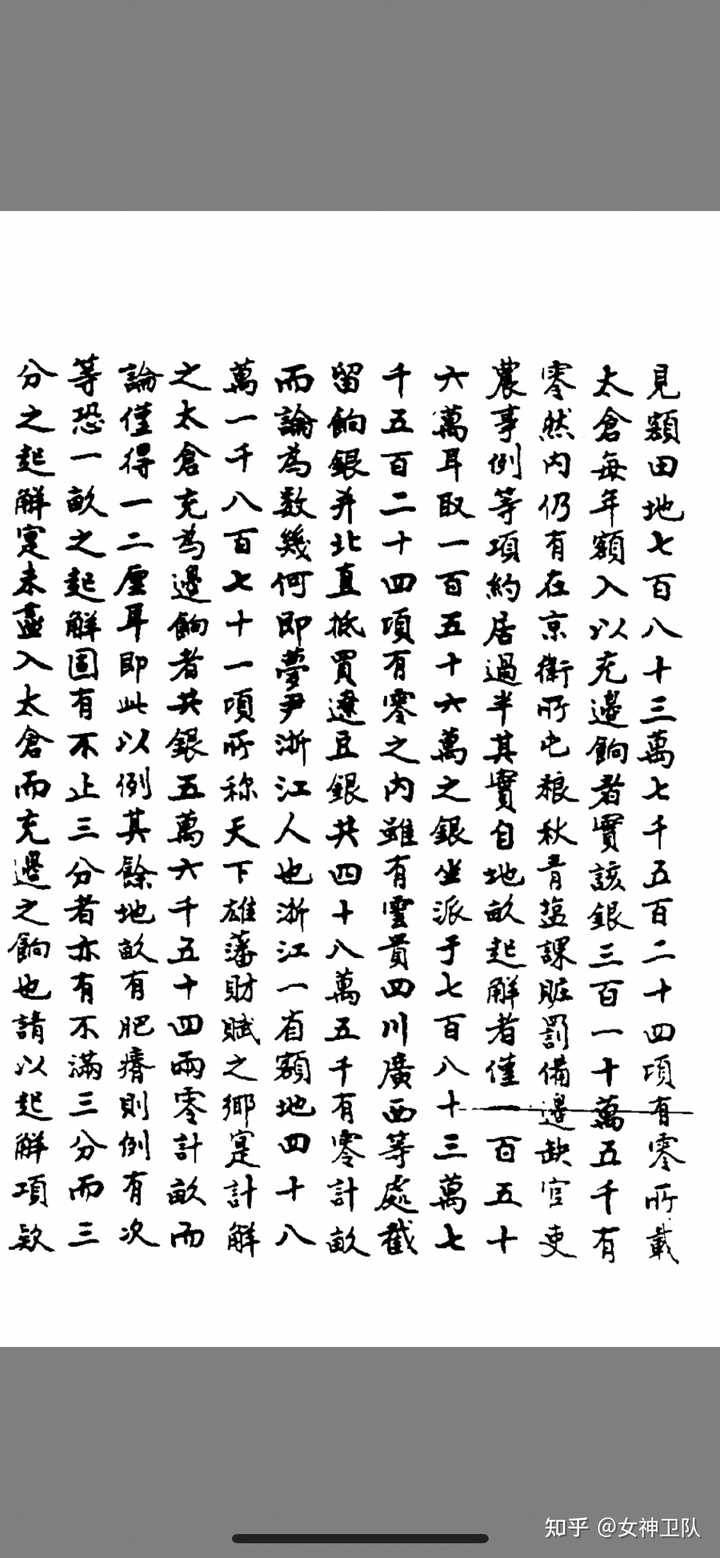 見額田地七百八十三萬七千五百二十四項有零所載
太倉每年額入以充邊餉者實該銀三百一十萬五千有
零然内仍有在京衛所屯粮秋青塩課賍罰備邊缺官吏
農事例等項約居過半其實自地畝起解者僅一百五十
六萬耳取一百五十六萬之銀坐派于七百八十三萬七
千五百二十四項有零之内雖有雲貴四川廣西等處截
留餉銀并北直抵買遼豆銀共四十八萬五千有零計畝
而論為数幾何即夢尹浙江人也浙江一省額地四十八
萬一千八百七十一項所称天下雄藩財賦之鄉寔計解
之太倉充為邊餉者共銀五萬六千五十四兩零計畝而
論僅得一二厘耳即此以例其餘地畝有肥瘠則例有次
等恐一畝之起解固有不止三分者亦有不滿三分而三
分之起解寔未盡入太倉而充邊之餉也請以起解項欵
知乎 @女神卫队